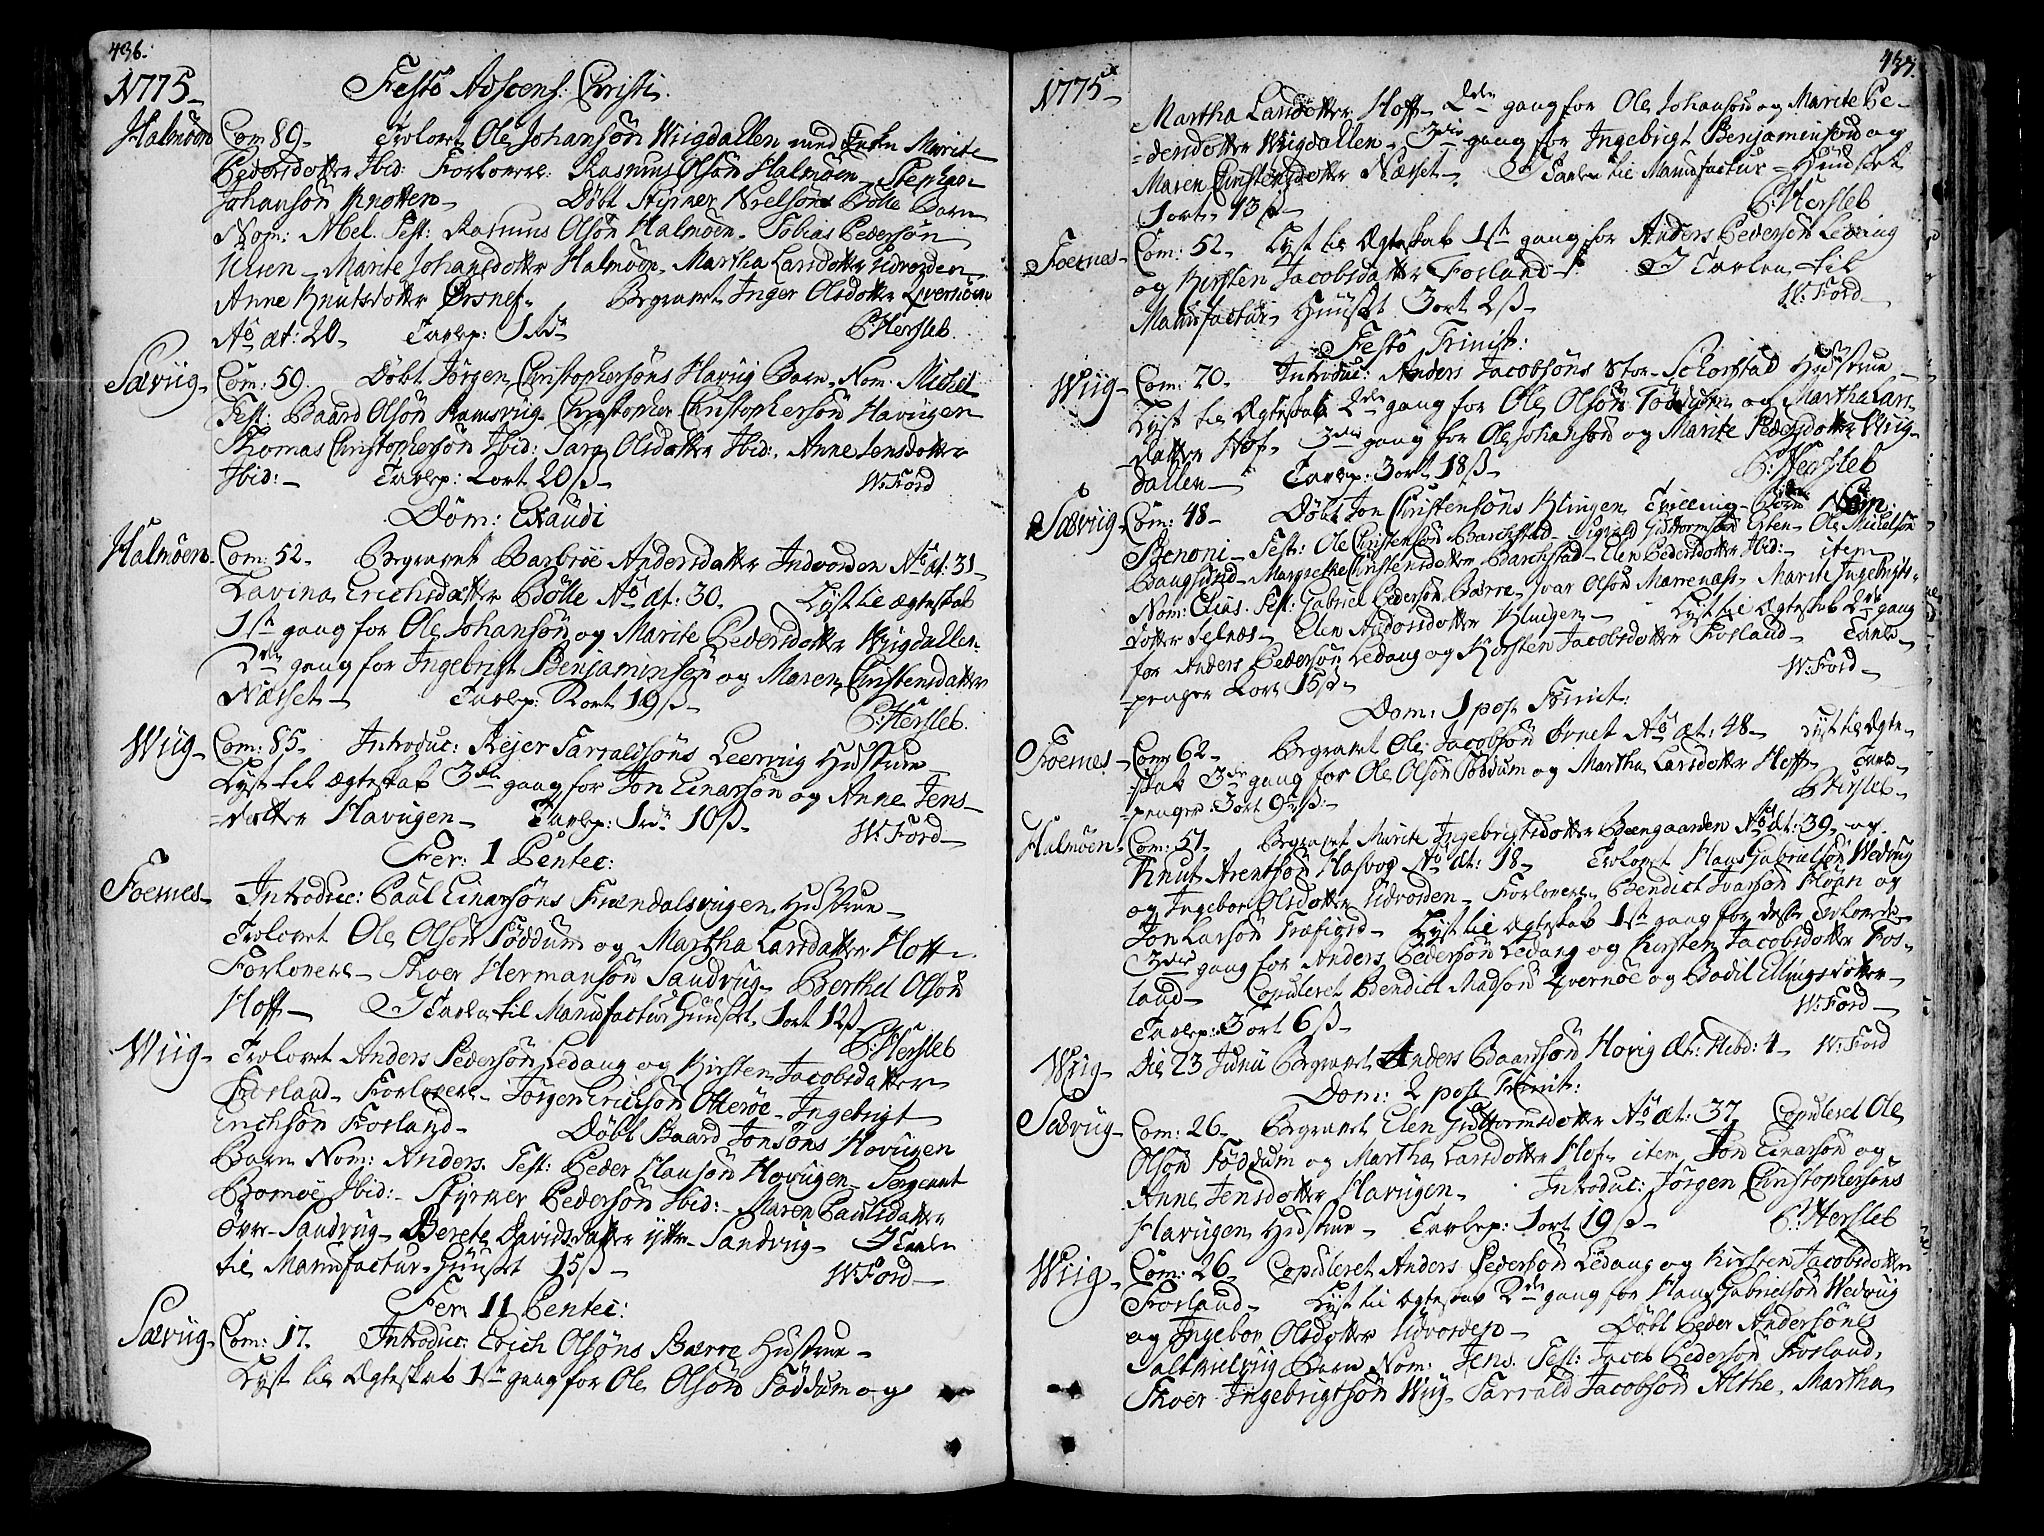 436.
1775
Festo Adscens: Christi.
Halmöen Com: 89 Trolovet Ole Johansön Wiigdallen med Enken Marite
Pedersdatter Ibid: Forlovere Rasmus Olsön Halmöen Stephan
Johansön Knotten Döbt Styrner Nielsöns Bölle Barn
Nom: Abel. Test: Rasmus Olsön Halmöen Tobias Pedersön
Ulsen Marite Johansdatter Halmöen Martha Larsdatter Udvorden
Anne Knutsdatter Ørsnes Begravet Inger Olsdatter Qvernöen
Ao æt: 20 Tavlep: 1 rdr P: Hersleb.
Sævug Com: 59. Döbt Jörgen Christophersöns Havüg Barn Nom: Michel
Test: Baard Olsön Ramsvüg Christopher Christophersön Havügen
Thomas Christophersön Ibid: Sara Olsdatter Ibid: Anne Jensdatter
Ibid: Tavlep: 2 ort 20 ß W: Ford
Dom: Exaudi
Halmöen Com: 52 Begravet Barbroe Andersdatter Indvorden Ao æt: 31
Lavina Erichsdatter Bölle Ao æt: 30. Lyst til ægteskab
1ste gang for Ole Johansön og Marite Pedersdatter Wiigdallen
2den gang for Ingebrigt Benjaminsön og Maren Christensdatter
Næsset Tavlep: 2 ort 19 ß P: Hersleb.
Wiig Com: 85. Introduc: Rejer Farraldsöns Leervüg Hustrue
Lyst til ægteskab 3die gang for Jon Einarsön og Anne Jens-
datter Havügen Tavlep: 1 rdr 10 ß W: Ford
Fer: 1 Pentec:
Foernes Introduc: Paul Einarsöns Frændalsvügen Hustrue
Trolovet Ole Olsön Föddum og Martha Larsdatter Hoff
Forlovere Thoer Hermansön Sandvüg Berthel Olsön
Hoff I Tavlen til Manufactur Huuset 1 ort 12 ß
P: Hersleb
Wiig Trolovet Anders Pedersön Ledang og Kirsten Jacobsdatter
Fosland Forlovere Jörgen Ericksön Otteröe Ingebrigt
Erichsön Fosland Döbt Baard Jonsöns Hovügen
Barn Nom: Anders. Test: Peder Hansön Hovügen Sergeant
Bomöe Ibid: Styrner Pedersön Ibid: Maren Paulsdatter
övre Sandvüg Berete Davidsdatter yttre Sandvüg I Tavlen
til Manufactur Huuset 15 ß W: Ford
Fer: 11 Pentec:
Sævüg Com: 17. Introduc: Erich Olsöns Bærre Hustrue
Lyst til Ægteskab 1ste gang for Ole Olsön Föddum og
437.
1775
Martha Larsdatter Hoff 2den gang for Ole Johansön og Marite Pe-
dersdatter Wiigdallen 3die gang for Ingebrigt Benjaminsön og
Maren Christensdatter Næsset I Tavlen til Manufactur Huuset
1 ort 13 ß P: Hersleb
Foernes Com: 52. Lyst til Ægteskab 1ste gang for Anders Pedersön Ledang
og Kirsten Jacobsdatter Fosland I Tavlen til
Manufactur Huuset 3 ort 2 ß W: Ford
Festo Trinit:
Wiig Com: 20. Introduc: Anders Jacobsöns Stor Schorstad Hustrue
Lyst til Ægteskab 2den gang for Ole Olsön Föddum og Martha Lars-
datter Hof 3die gang for Ole Johansön og Marite Pedersdatter Wiig-
dallen Tavlep: 3 ort 18 ß P: Hersleb
Sævüg Com: 48 Döbt Jon Christensöns Klingen Tvilling Börn
Benoni Test: Ole Christensön Barchstad Sigvald Guttormsön Ekren Ole Michelsön
Bangsund Margrethe Christensdatter Barchstad Elen Pedersdatter Ibid: item
Nom: Elias. Test: Gabriel Pedersön Bærre Ivar Olsön Marrenæss Marite Ingebrigts-
datter Selnæs Elen Andersdatter Klingen Lyst til Ægteskab 2den gang
for Anders Pedersön Ledang og Kirsten Jacobsdatter Fosland Tavle-
penger 2 ort 15 ß W: Ford
Dom: 1 post Trinit:
Foernes Com: 62 Begravet Ole Jacobsön Ørnet Ao æt: 48 Lyst til Ægte-
skab 3die gang for Ole Olsön Föddum og Martha Larsdatter Hoff Tavle-
penger 3 ort 9 ß P: Hersleb
Halmöen Com: 51 Begravet Marite Ingebrigtsdatter Beengaarden Ao æt: 39 og
Knut Arentsön Hasvog Ao æt: 18 Trolovet Hans Gabrielsön Wedvüg
og Ingebor Olsdatter Udvorden Forlovere Bendict Ivarsön Flöan og
Jon Larsön Træfigrd Lyst til Ægteskab 1ste gang for disse Trolovede
3die gang for Anders Pedersön Ledang og Kirsten Jacobsdatter Fos-
land Copuleret Bendict Madsön Qvernöe og Bodil Ellingsdatter
Tavlep: 3 ort 6 ß W: Ford
Wiig Die 23 Junii Begravet Anders Baarsön Hovig Æt: Hebd: 4 W: Ford
Dom: 2 post Trinit:
Sævüg Com: 26 Begravet Elen Guttormsdatter Ao æt: 37 Copuleret Ole
Olsön Föddum og Martha Larsdatter Hof item Jon Einarsön og
Anne Jensdatter Havügen Introduc: Jörgen Christophersöns
Havügen Hustrue Tavlep: 1 ort 19 ß P: Hersleb
Wiig Com: 26. Copuleret Anders Pedersön Ledang og Kirsten Jacobsdatter
Fosland Lyst til Ægteskab 2den gang for Hans Gabrielsön Wedvüg
og Ingebor Olsdatter Udvorden Döbt Peder Andersöns
Barn Nom: Jens. Test: Jacob Pedersön Fosland
Thoer Ingebrigtsön Wiig Farrald Jacobsön Althe Martha